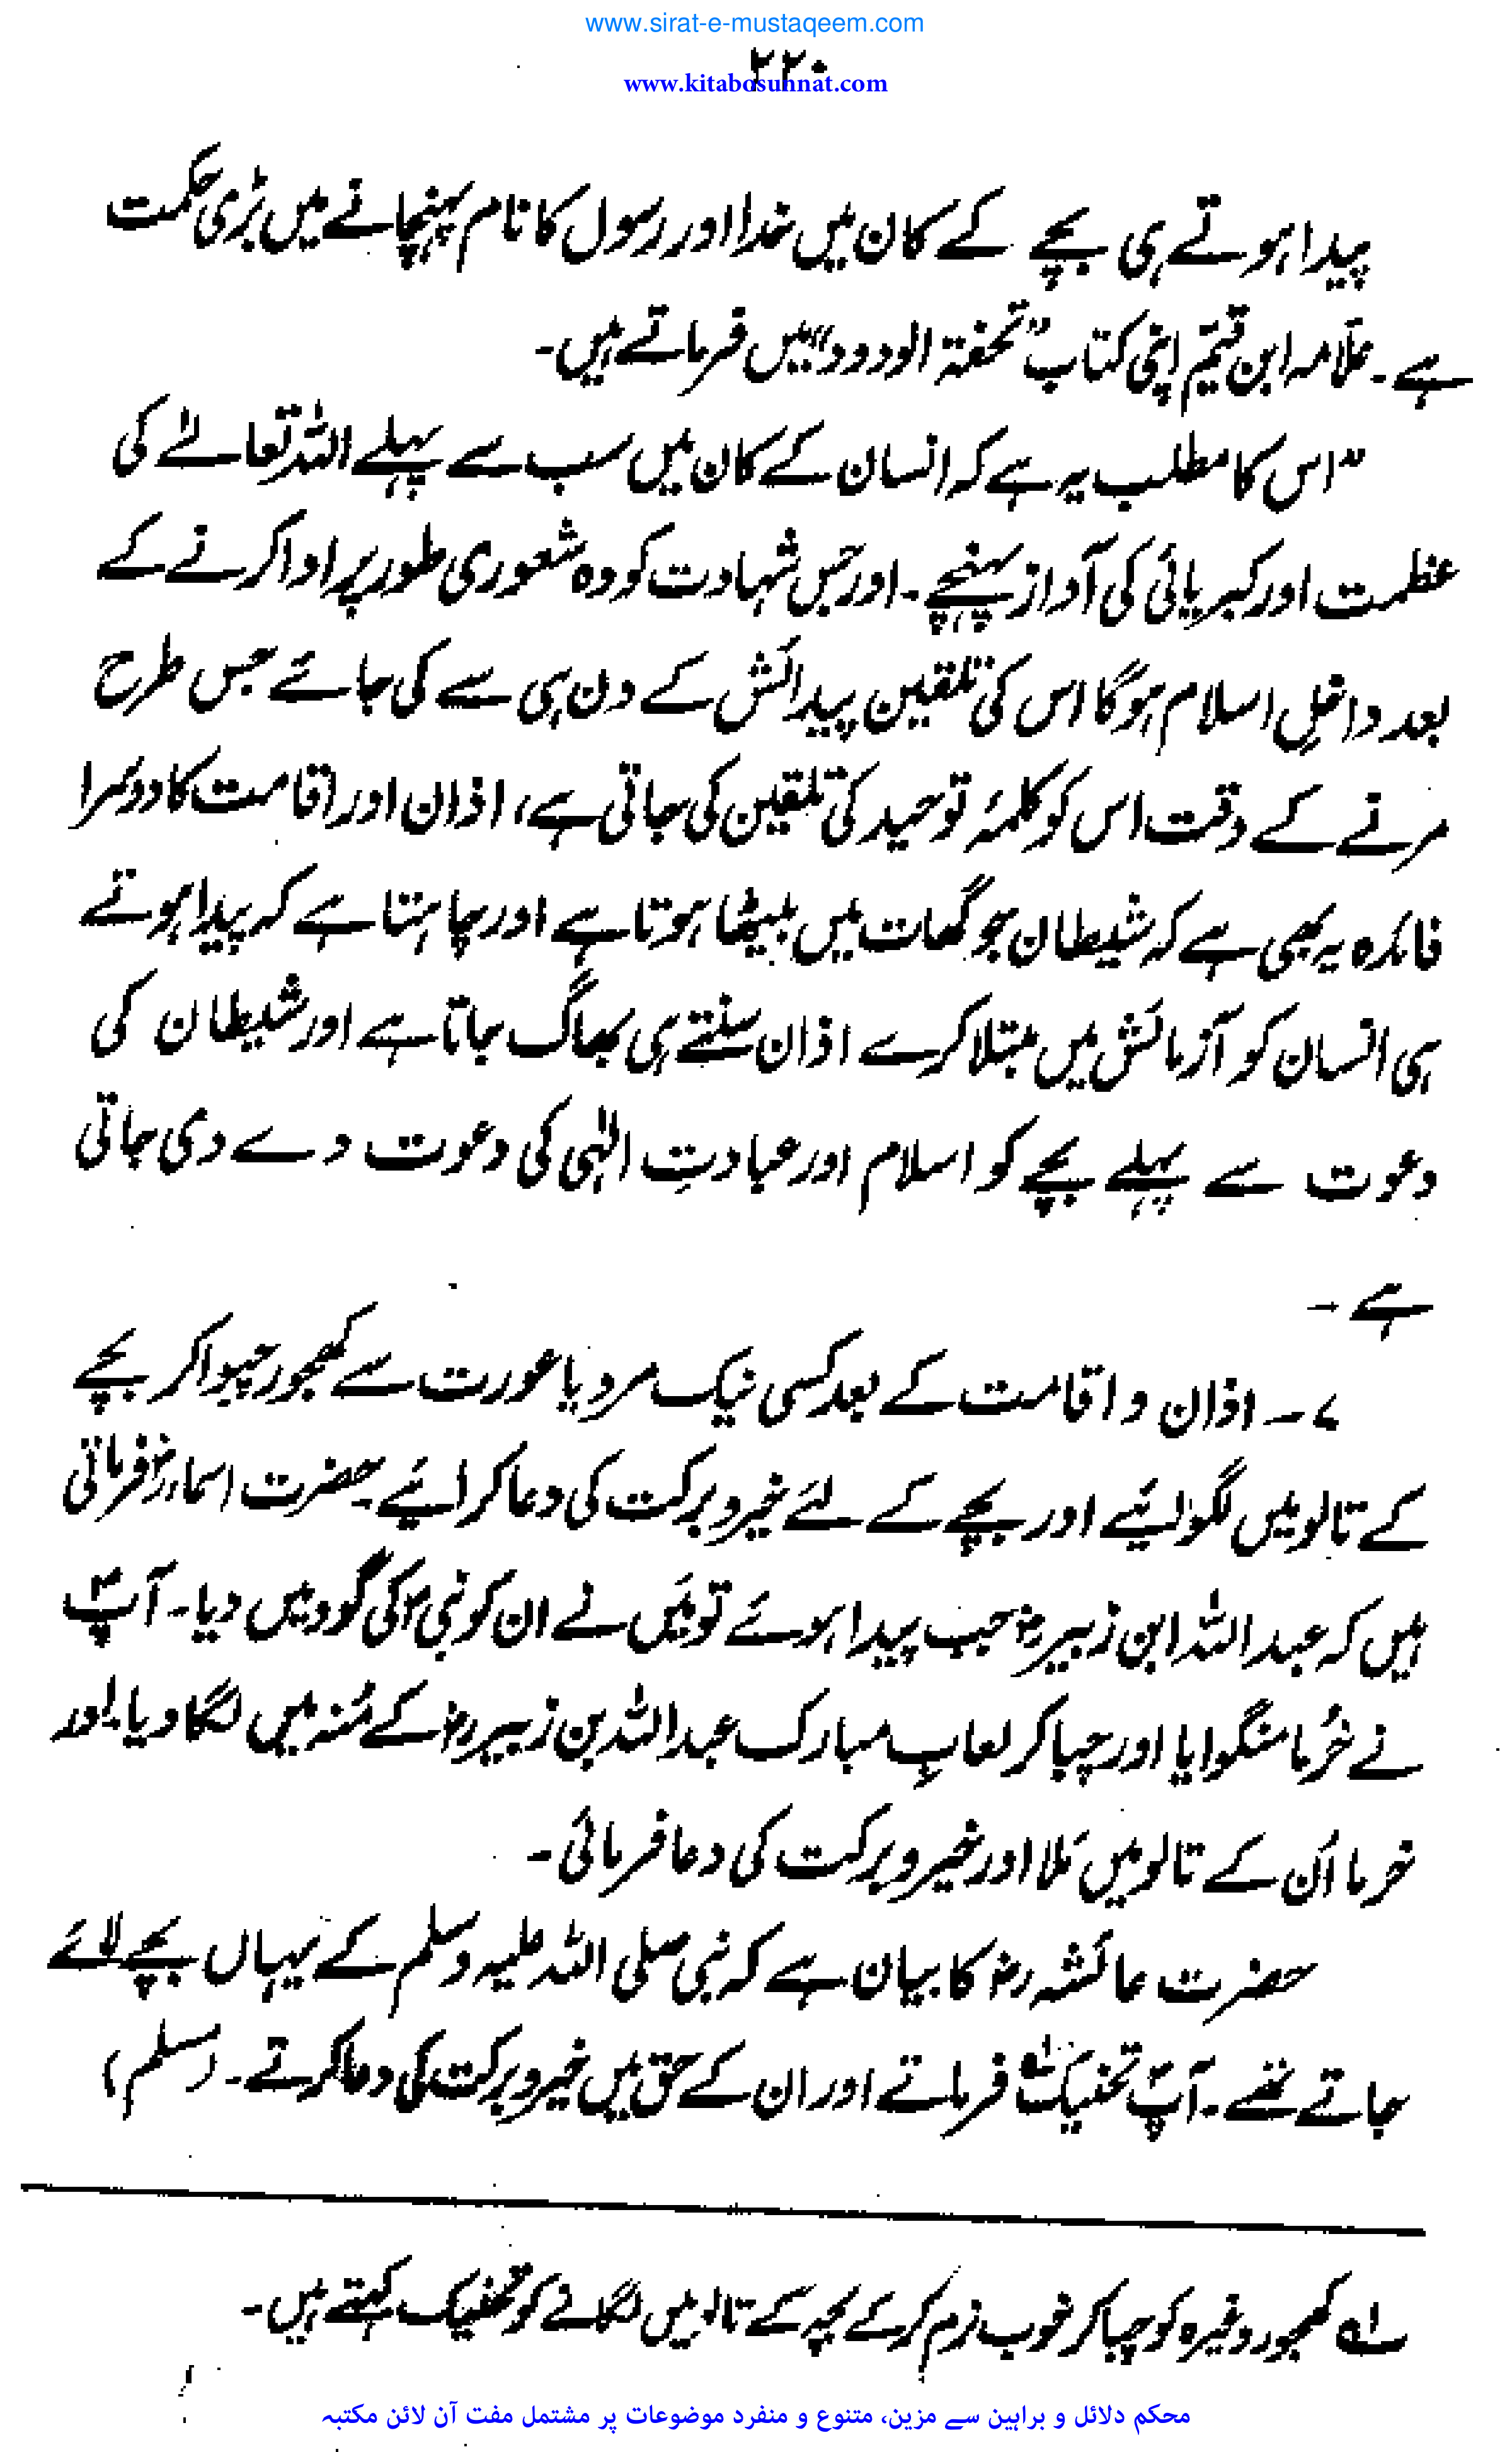 www.sirat-e-mustaqeem.com
۲۲۰
www.kitabosunnat.com
پیدا ہوتے ہی بچے کے کان میں خدا اور رسول کا نام پہنچانے میں بڑی حکمت
ہے۔ علّامہ ابن قیّم اپنی کتاب ”تحفۃ الودود“ میں فرماتے ہیں۔
”اس کا مطلب یہ ہے کہ انسان کے کان میں سب سے پہلے اللہ تعالےٰ کی
عظمت اور کبریائی کی آواز پہنچے۔ اور جس شہادت کو وہ شعوری طور پر ادا کرنے کے
بعد داخلِ اسلام ہوگا اس کی تلقین پیدائش کے دن ہی سے کی جائے جس طرح
مرنے کے وقت اس کو کلمۂ توحید کی تلقین کی جاتی ہے، اذان اور اقامت کا دوسرا
فائدہ یہ بھی ہے کہ شیطان جو گھات میں بیٹھا ہوتا ہے اور چاہتا ہے کہ پیدا ہوتے
ہی انسان کو آزمائش میں مبتلا کرے اذان سنتے ہی بھاگ جاتا ہے اور شیطان کی
دعوت سے پہلے بچے کو اسلام اور عبادتِ الٰہی کی دعوت دے دی جاتی
ہے۔
۷۔ اذان و اقامت کے بعد کسی نیک مرد یا عورت سے کھجور چبوا کر بچے
کے تالو میں لگوائیے اور بچے کے لئے خیر و برکت کی دعا کرائیے۔ حضرت اسماءؓ فرماتی
ہیں کہ عبد اللہ ابن زبیرؓ جب پیدا ہوئے تو میَں نے ان کو نبیؐ کی گود میں دیا۔ آپؐ
نے خُرما منگوایا اور چبا کر لعابِ مبارک عبد اللہ بن زبیرؓ کے مُنہ میں لگا دیا۔ اور
خرما اُن کے تالو میں مَلا اور خیر و برکت کی دعا فرمائی۔
حضرت عائشہؓ کا بیان ہے کہ نبی صلی اللہ علیہ وسلم کے یہاں بچے لائے
جاتے تھے۔ آپؐ تحنیک؁۱ فرماتے اور ان کے حق میں خیر و برکت کی دعا کرتے۔ (مسلم)
؁۱ کھجور وغیرہ کو چبا کر خوب نرم کر کے بچہ کے تالو میں لگانے کو تحنیک کہتے ہیں۔
محکم دلائل و براہین سے مزین، متنوع و منفرد موضوعات پر مشتمل مفت آن لائن مکتبہ